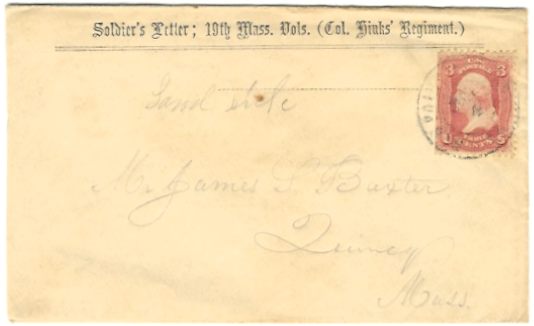 Soldier's Letter; 19th Mass. Vols. (Col. Hinks' Regiment.)
3 U.S. POSTAGE 3
THREE CENTS
U S
Mr. James S. Baxter
Quincy
Mass.